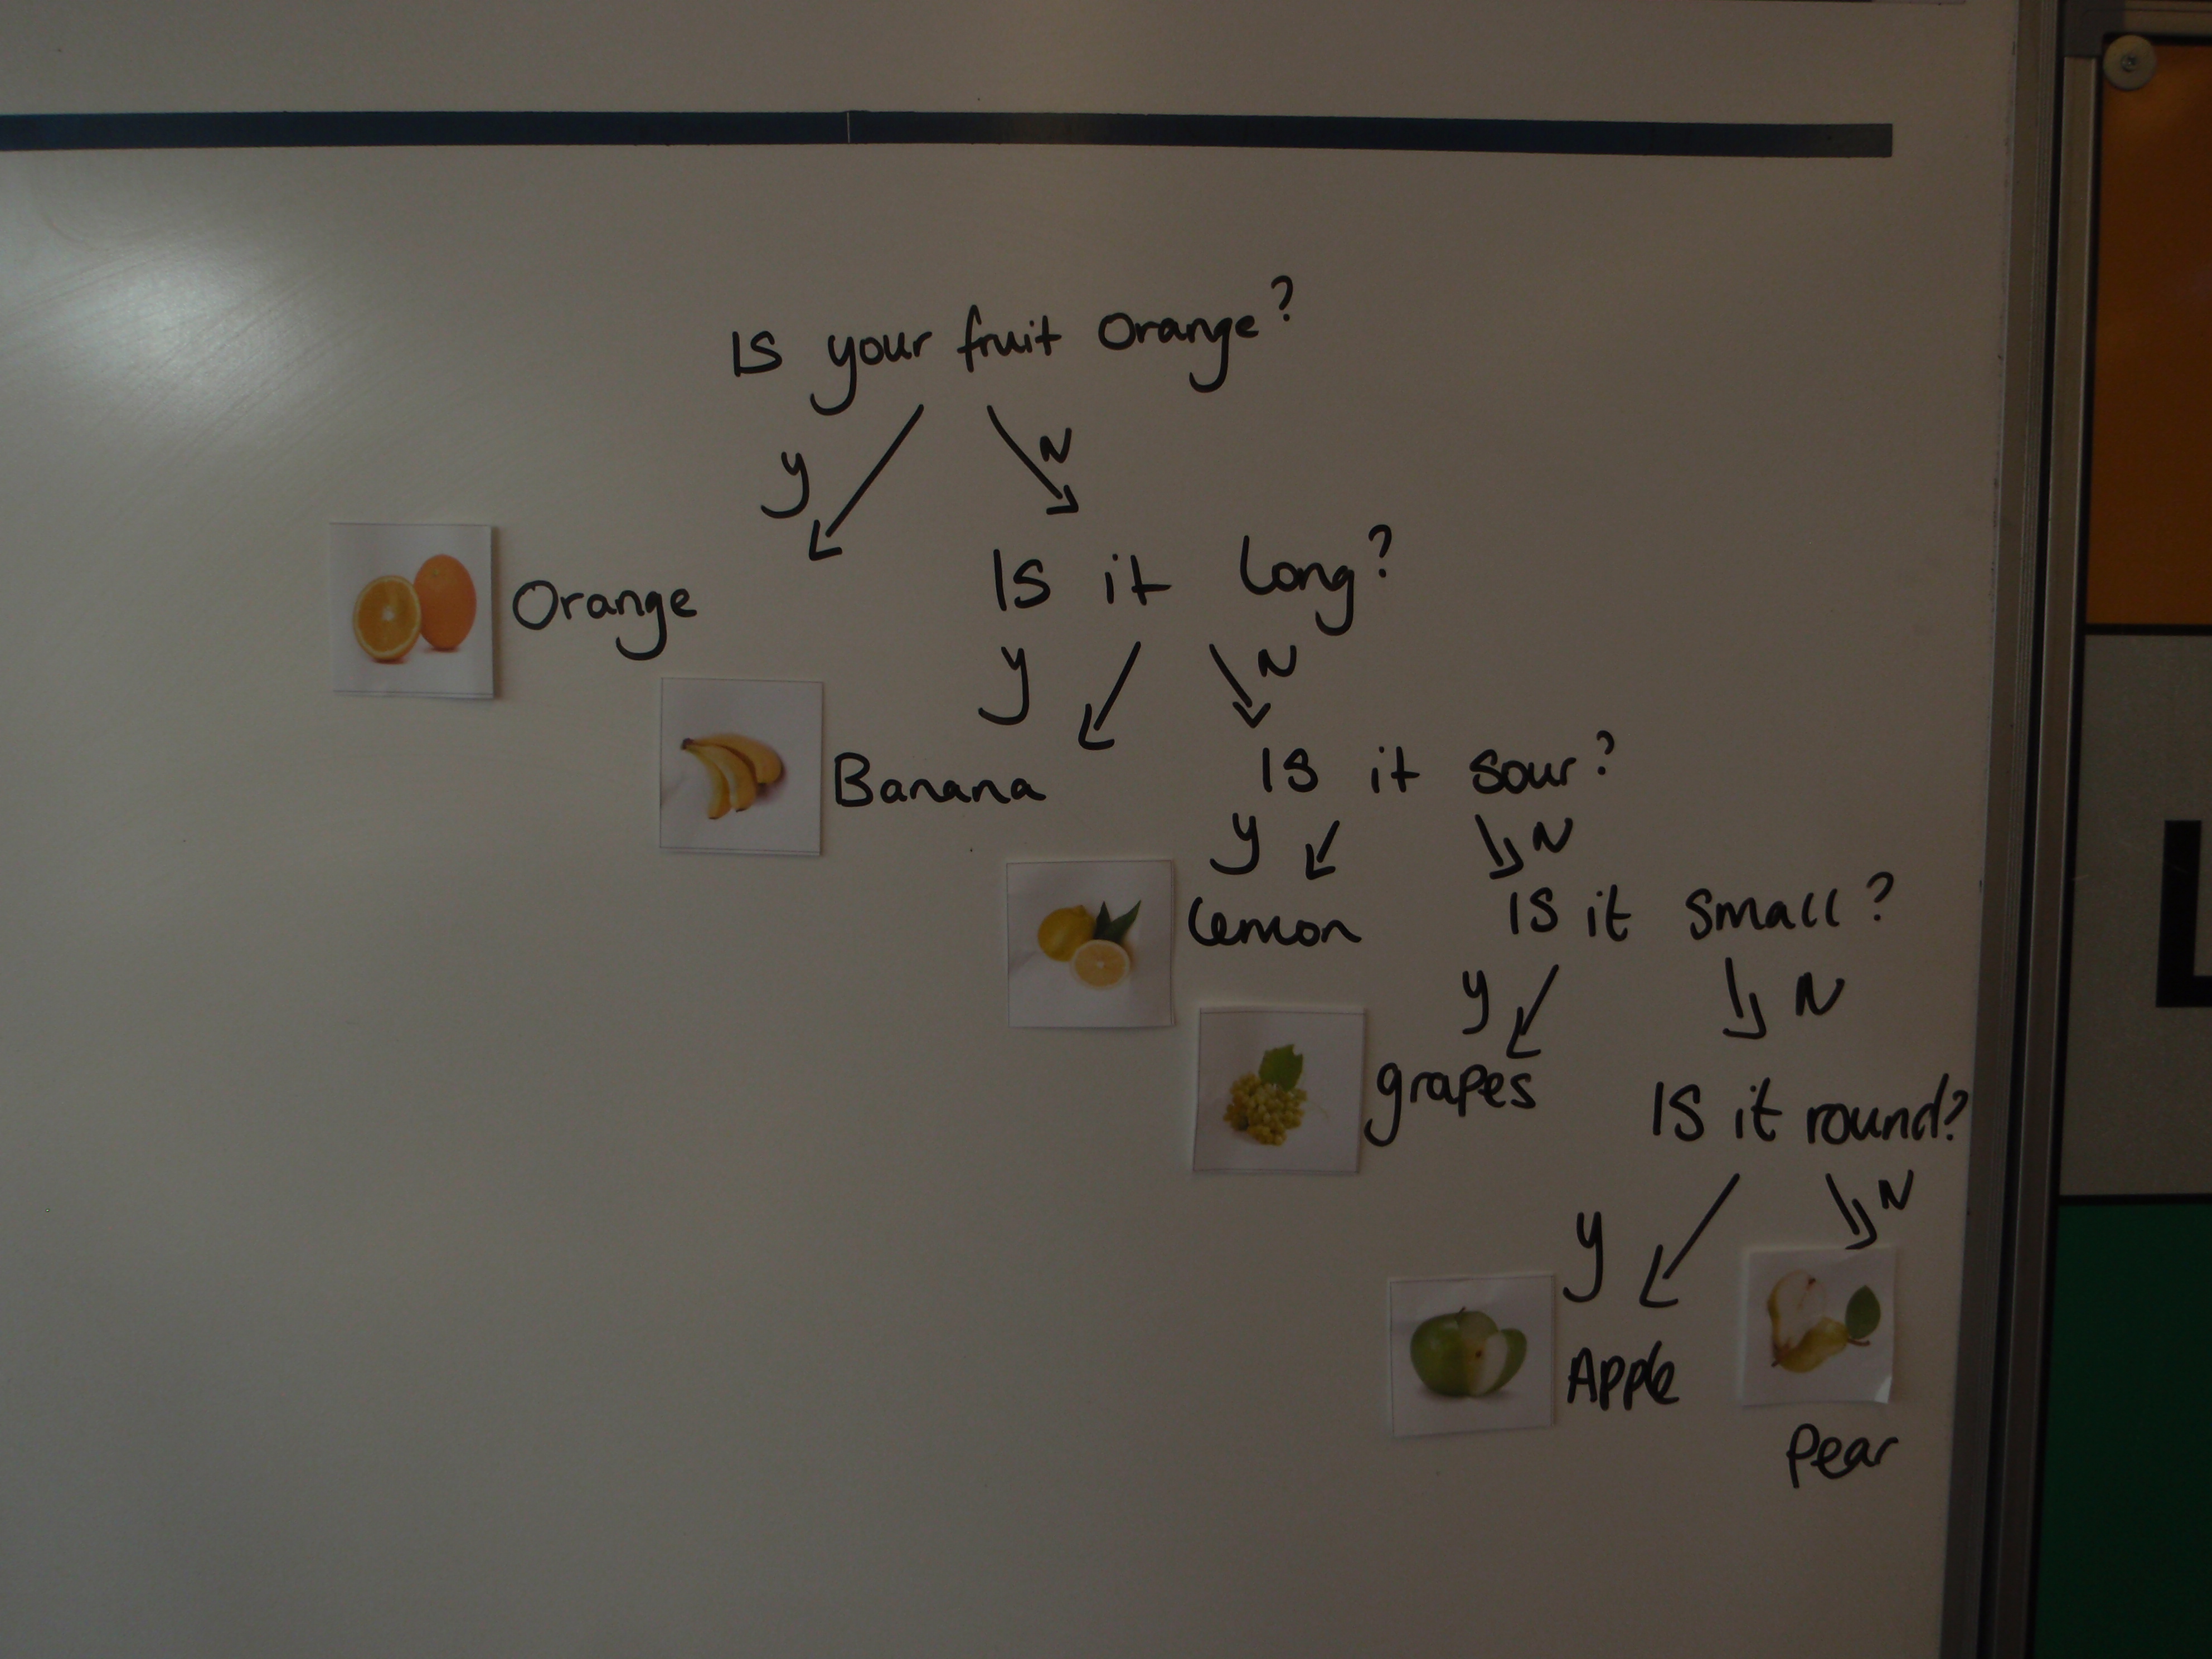 Is your fruit Orange?
y
N
Orange
Is it long?
y
N
Banana
Is it sour?
y
N
lemon
Is it small?
y
N
grapes
Is it round?
y
N
Apple
Pear